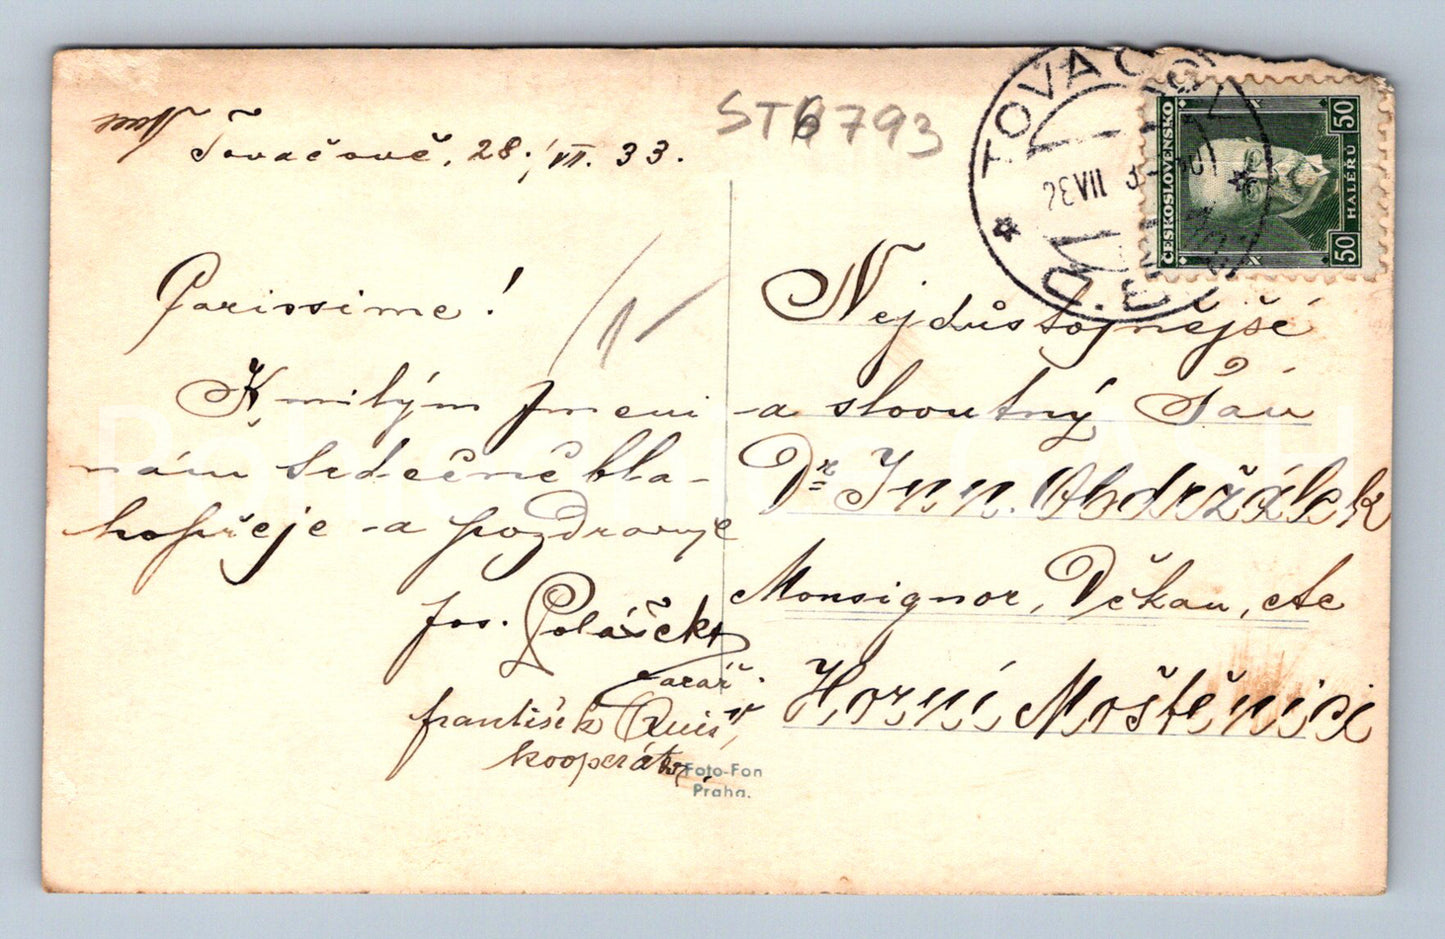 Tovačově, 28./VII. 33.
ST6793
TOVAČOV
28 VII 3
ČESKOSLOVENSKO
50 HALÉRŮ 50
Carissime!
K milým jmeni
nám srdečně bla-
hopřeje a pozdravuje
Jos. Poláček
farář.
František
kooperátor
Nejdůstojnější
a slovutný Pán
Dr Inn. Obdržálek
Monsignor, Děkan, etc
Horní Moštěnici
Foto-Fon
Praha.